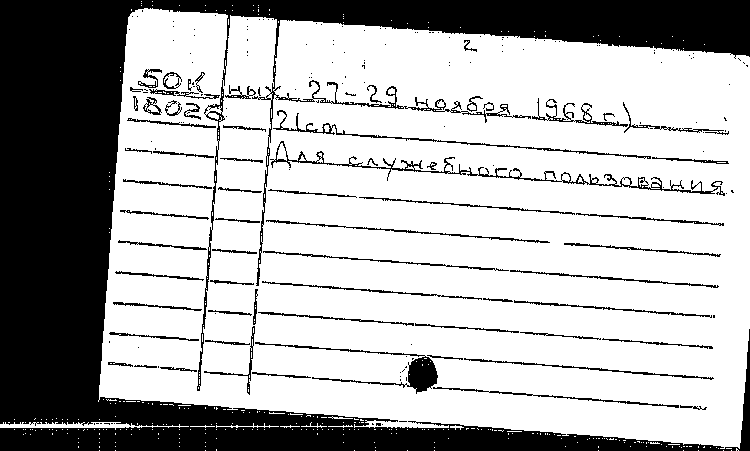 2
50К ных. 27-29 ноября 1968 г.)
18026 21 ст.
Для служебного пользования.